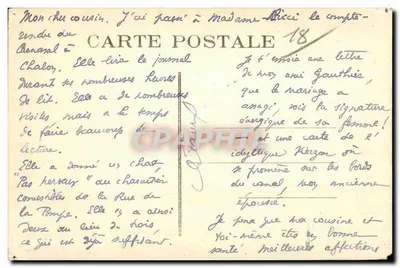 Mon cher cousin. J'ai passé à Madame Ricci le compte-
rendu du
Carnaval à
Chalon. Elle lira le journal
durant ses nombreuses heures
de lit. Elle a de nombreuses
visites mais a le temps
de faire beaucoup de
lecture.
Elle a donné un chat
"Pas nerveux" au charcutier
comestibles de la Rue de
la Pompe. Elle n'a ainsi
deux au lieu de trois,
ce qui est déjà suffisant.
CARTE POSTALE
18
Je t'envoie une lettre
de mon ami Gauthier,
que le mariage a
assagi, vois la signature
énergique de sa femme!
et une carte de l'
idyllique Vierzon où
se promène sur les bords
du canal, mon ancienne
épousée.
Je pense que ma cousine et
toi-même êtes en bonne
santé. Meilleures affections
CPARAMA